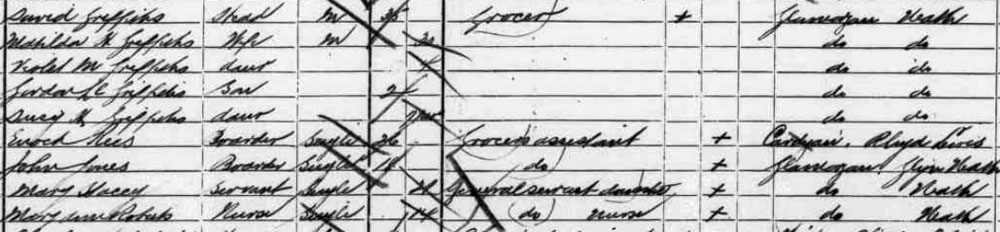 David Griffiths Head M 35 Grocer + Glamorgan Neath
Matilda H Griffiths Wife M 30 do do
Violet M Griffiths daur 4 do do
Gordon Griffiths Son 2 do do
Griffiths daur do do
Enoch Rees Boarder Single 26 Grocers assistant + Cardigan
John Jones Boarder Single 19 do + Glamorgan Neath
Mary Stacey Servant Single 21 General servant domestic + do Neath
Mary Ann Roberts Nurse Single 14 (do) nurse + do Neath